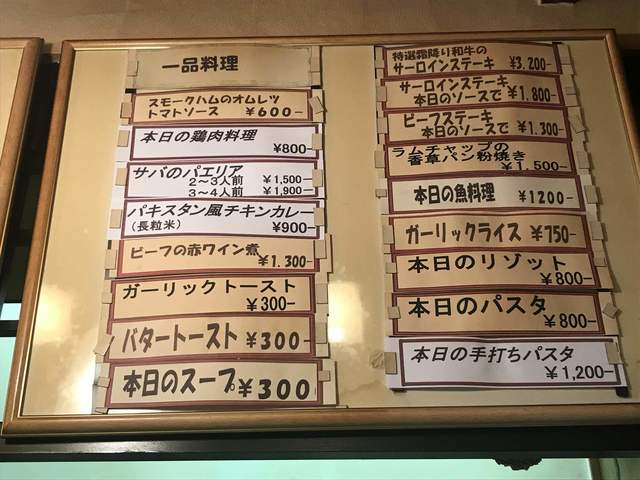 一品料理
スモークハムのオムレツ
トマトソース ¥600-
本日の鶏肉料理
¥800-
サバのパエリア
2〜3人前 ¥1,500-
3〜4人前 ¥1,900-
パキスタン風チキンカレー
(長粒米) ¥900-
ビーフの赤ワイン煮
¥1.300-
ガーリックトースト
¥300-
バタートースト ¥300-
本日のスープ ¥300
特選霜降り和牛の
サーロインステーキ ¥3.200-
サーロインステーキ
本日のソースで ¥1.800-
ビーフステーキ
本日のソースで ¥1.300-
ラムチャップの
香草パン粉焼き
¥1.500-
本日の魚料理 ¥1200-
ガーリックライス ¥750-
本日のリゾット
¥800-
本日のパスタ
¥800-
本日の手打ちパスタ
¥1,200-